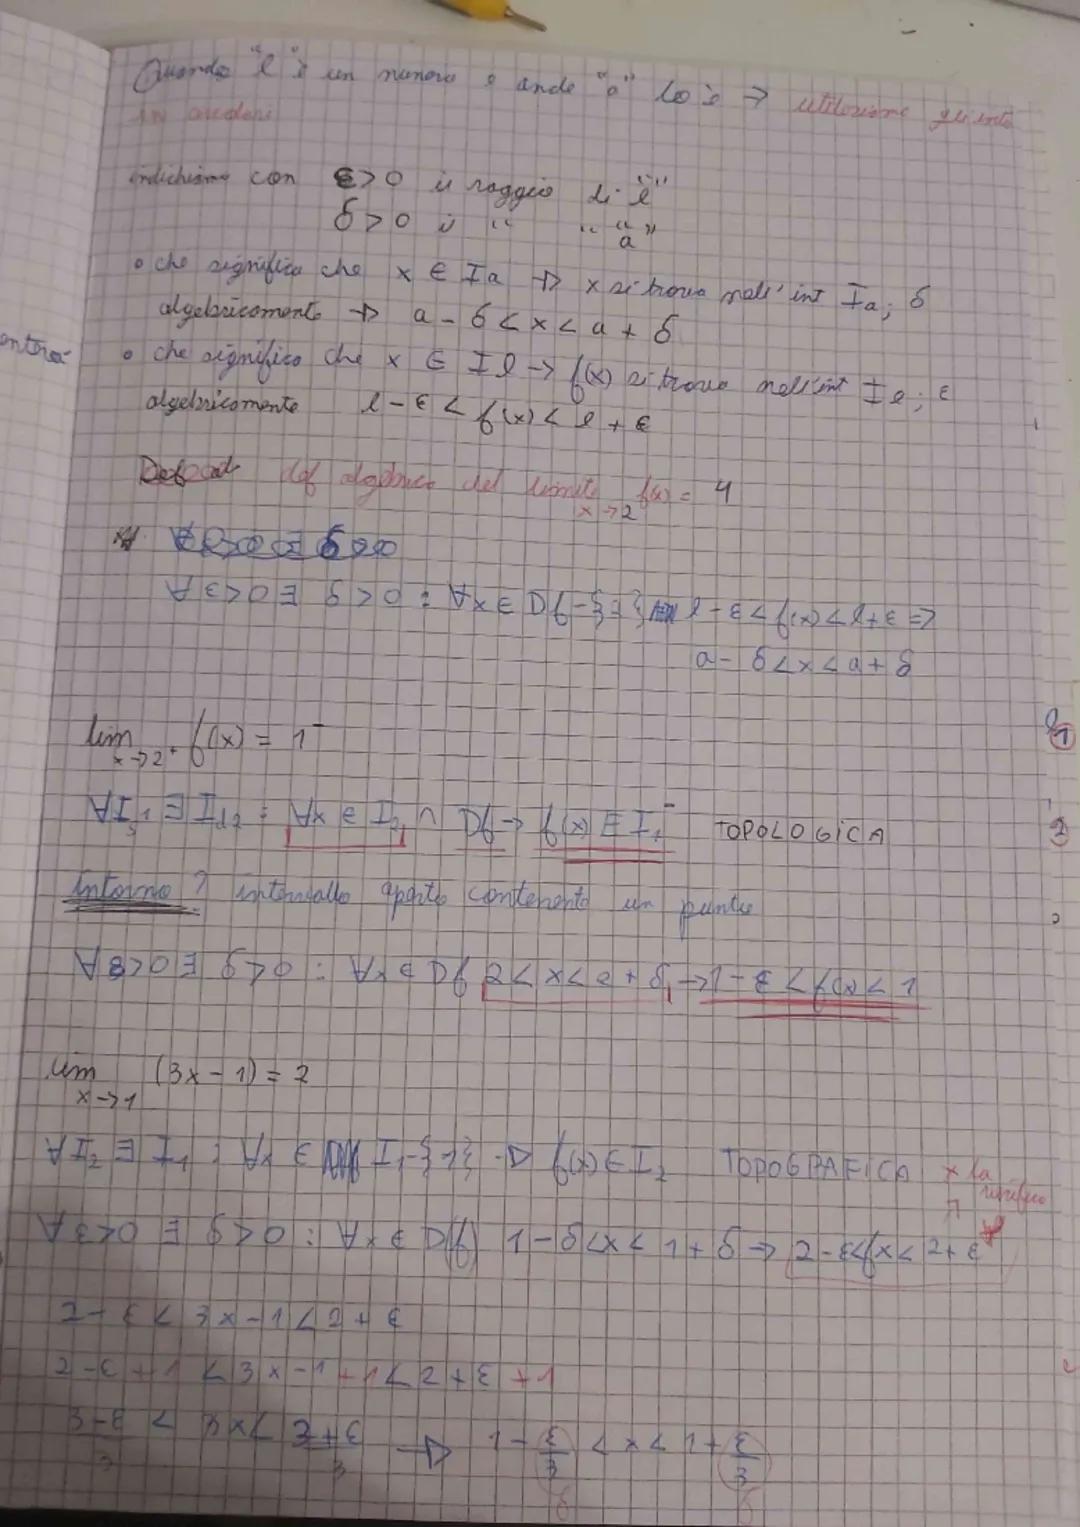 Quando "l" è un numero e anche "a" lo è → utilizziamo gli intorni
indichiamo con ε>0 il raggio di "l"
δ>0 il " " "a"
• che significa che x ∈ Ia → x si trova nell'int Ia; δ
algebricamente → a - δ < x < a + δ
entrerà
• che significa che x ∈ Il → f(x) si trova nell'int Il; ε
algebricamente l - ε < f(x) < l + ε
def algebrica del limite f(x) = 4
x → 2
∀ε>0 ∃ δ>0 : ∀x∈Df-{ } l-ε<f(x)<l+ε =>
a - δ<x<a+δ
lim f(x) = 1⁻
x→2⁺
∀I₁ ∃ I₂ : ∀x ∈ I₂ ∩ Df → f(x) ∈ I₁⁻ TOPOLOGICA
Intorno? intervallo aperto contenente un punto
∀ε>0 ∃ δ>0 : ∀x∈Df 2<x<2+δ → 1-ε<f(x)<1
lim (3x-1) = 2
x→1
∀I₂ ∃ I₁ : ∀x ∈ I₁-{1} → f(x)∈I₂ TOPOGRAFICA x la verifica
∀ε>0 ∃ δ>0 : ∀x∈D(f) 1-δ<x<1+δ → 2-ε<fx<2+ε
2-ε<3x-1<2+ε
2-ε+1<3x-1+1<2+ε+1
3-ε/3 < 3x < 3+ε/3 → 1-ε/3 < x < 1+ε/3
δ δ